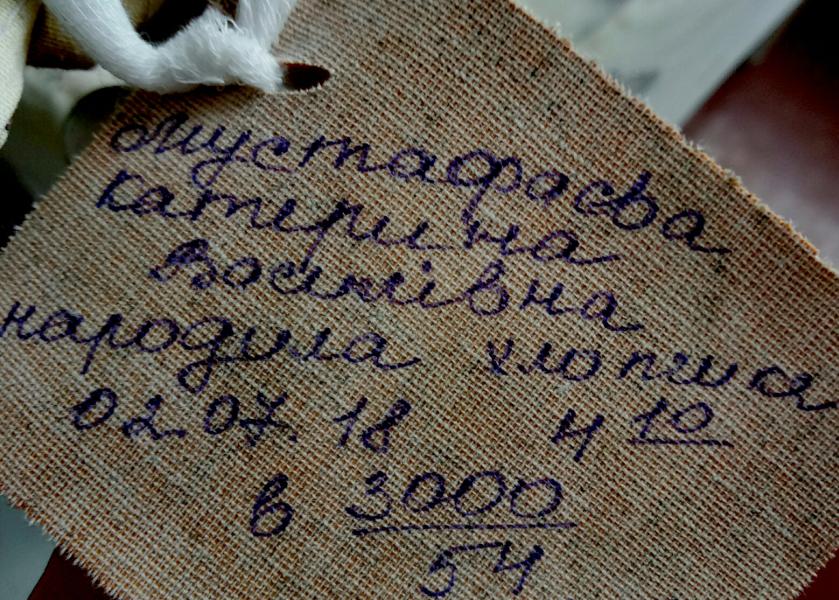 Мустафаєва
Катерина
Василівна
народила хлопчика
02.07.18 4 10
в 3000
54